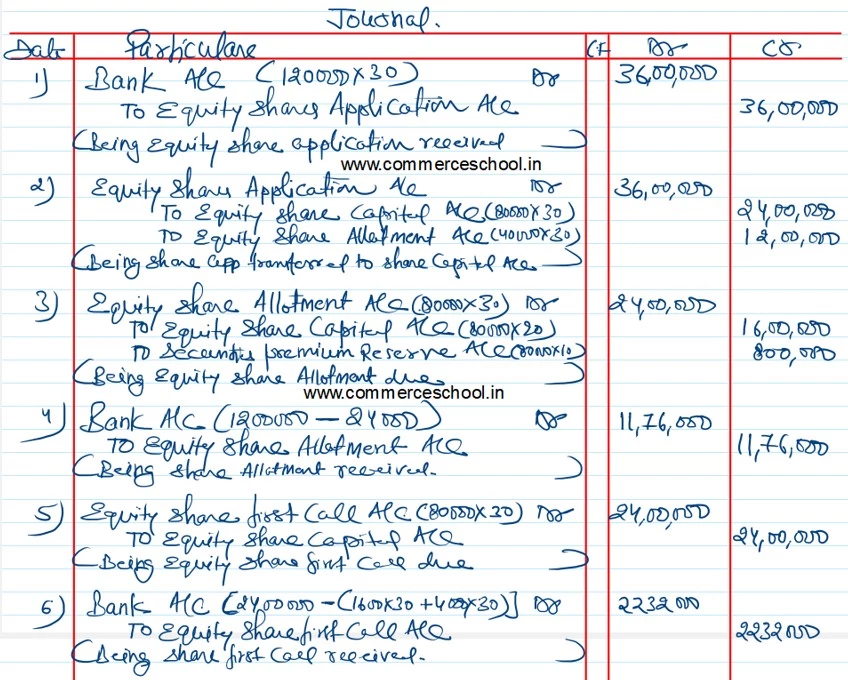 Journal.
Date Particulars LF Dr Cr
1) Bank A/C (120000×30) Dr 36,00,000
To Equity Shares Application A/C 36,00,000
(Being Equity share application received)
www.commerceschool.in
2) Equity Shares Application A/c Dr 36,00,000
To Equity Share Capital A/C (80000×30) 24,00,000
To Equity Share Allotment A/C (40000×30) 12,00,000
(Being share app transferred to share Capital A/C)
3) Equity Share Allotment A/C (80000×30) Dr 24,00,000
To Equity Share Capital A/C (80000×20) 16,00,000
To Securities premium Reserve A/C (80000×10) 800,000
(Being Equity share Allotment due)
www.commerceschool.in
4) Bank A/C (1200000 – 24000) Dr 11,76,000
To Equity Share Allotment A/C 11,76,000
(Being Share Allotment received.)
5) Equity Share first Call A/C (80000×30) Dr 24,00,000
To Equity Share Capital A/C 24,00,000
(Being Equity Share first Call due)
6) Bank A/C [2400000 – (1600×30 + 4000×30)] Dr 2232000
To Equity Share first Call A/C 2232000
(Being share first Call received.)